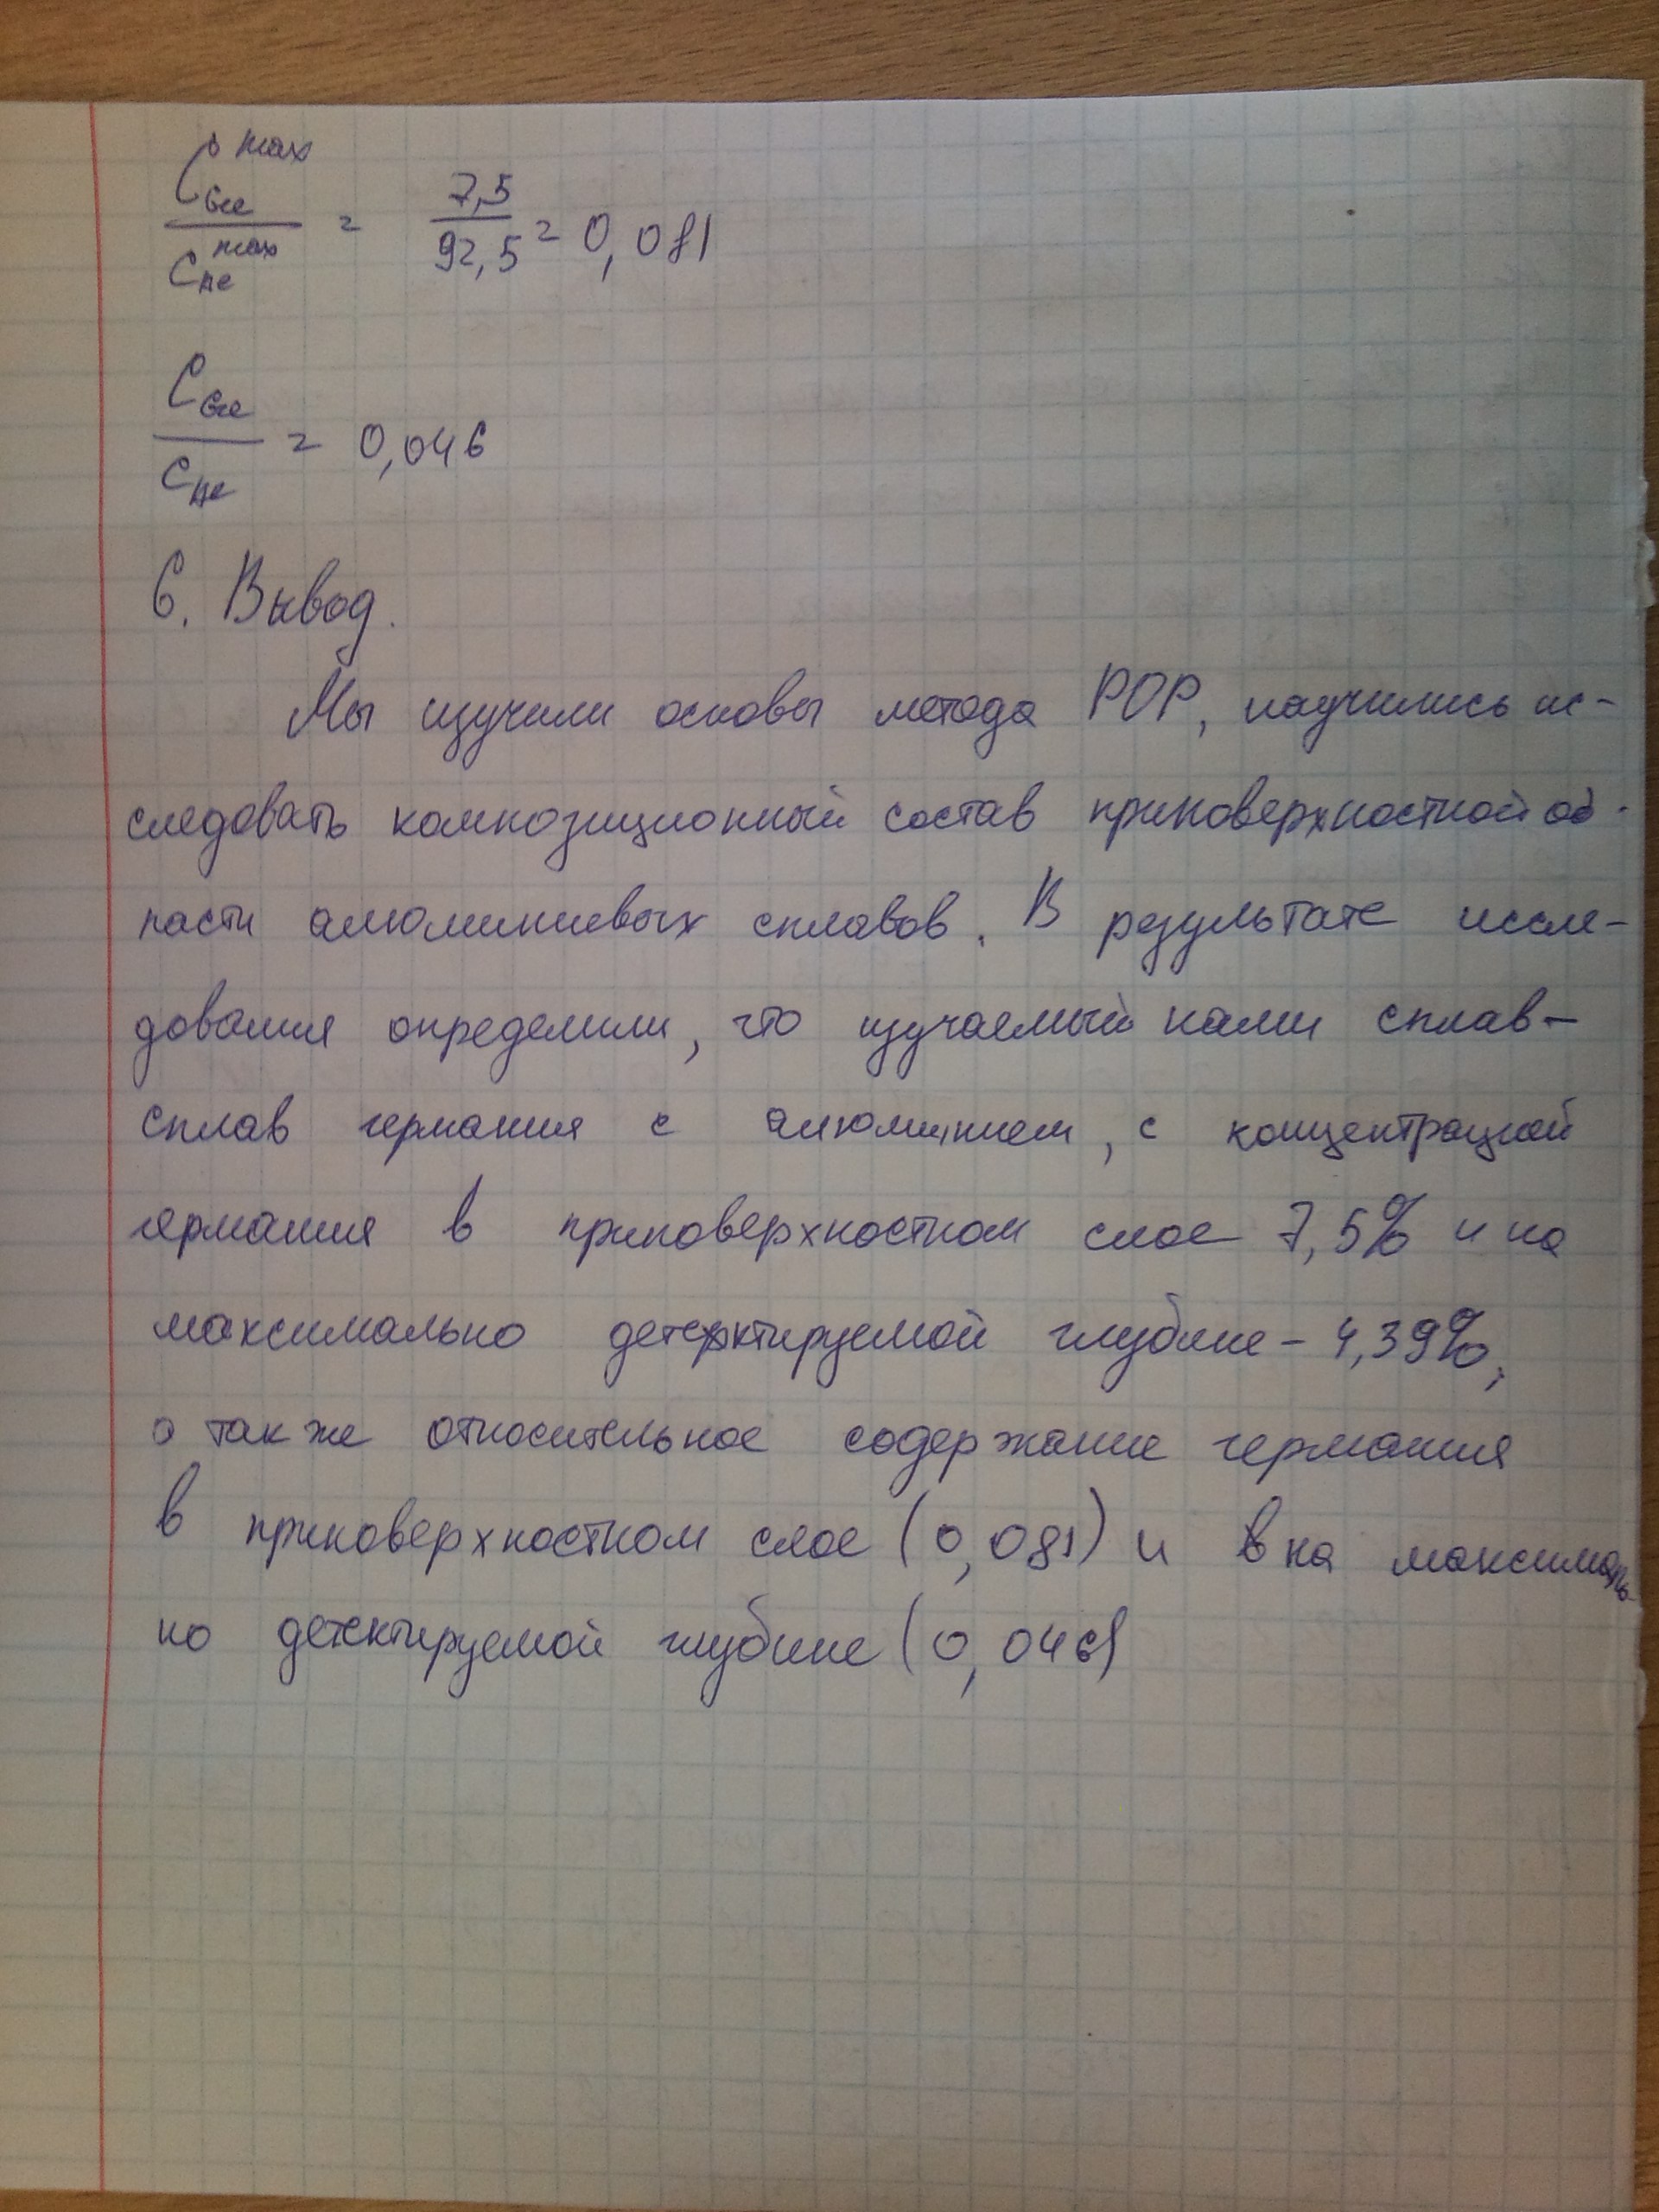 C_Ge^max / C_Al^max = 7,5 / 92,5 = 0,081
C_Ge / C_Al = 0,046
6. Вывод.
Мы изучили основы метода РОР, научились ис-
следовать композиционный состав приповерхностной об-
ласти алюминиевых сплавов. В результате иссле-
дования определили, что изучаемый нами сплав-
сплав германия с алюминием, с концентрацией
германия в приповерхностном слое 7,5% и на
максимально детектируемой глубине - 4,39%,
а также относительное содержание германия
в приповерхностном слое (0,081) и на максималь-
но детектируемой глубине (0,046)